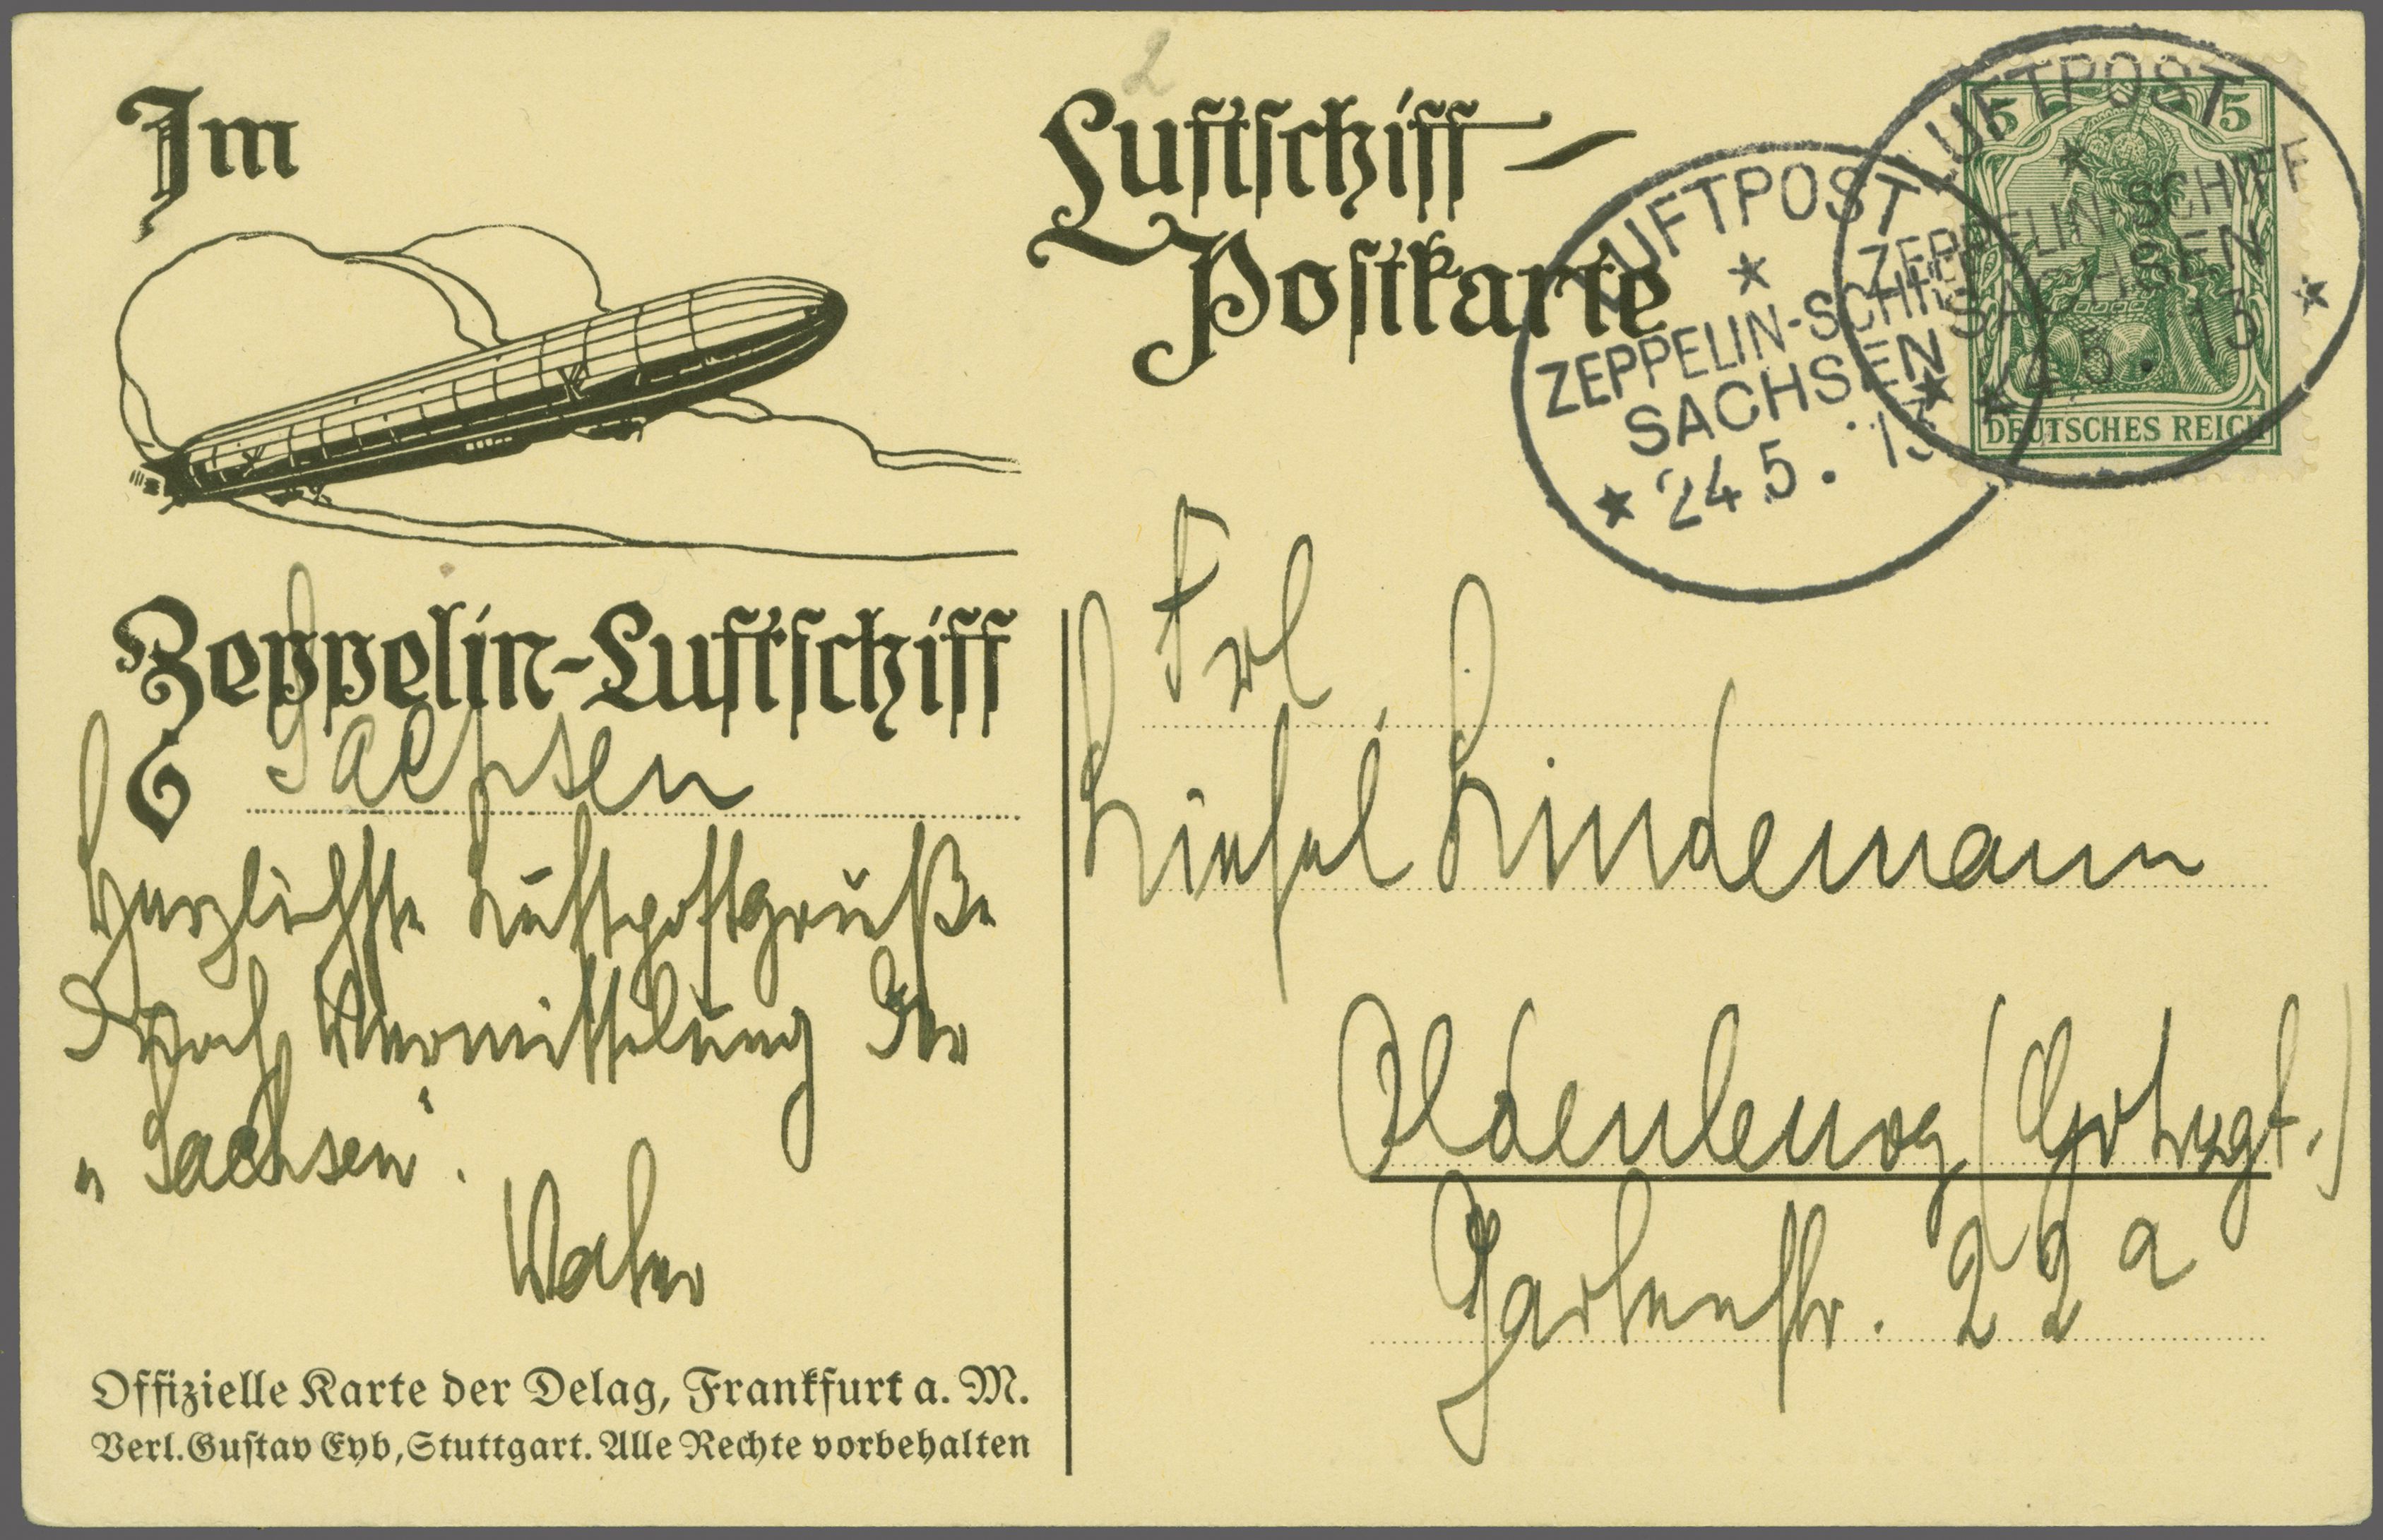 2
Im
Luftschiff-
Postkarte
LUFTPOST
ZEPPELIN-SCHIFF
SACHSEN
24 5. 13
LUFTPOST
ZEPPELIN-SCHIFF
SACHSEN
24 5. 13
5 5
DEUTSCHES REICH
Zeppelin-Luftschiff
Sachsen
Herzlichste Luftpostgrüße
durch Vermittelung der
„Sachsen“.
Vater
Offizielle Karte der Delag, Frankfurt a. M.
Verl. Gustav Eyb, Stuttgart. Alle Rechte vorbehalten
Frl.
Liesel Lindemann
Oldenburg (Grhzgt.)
Gartenstr. 22 a